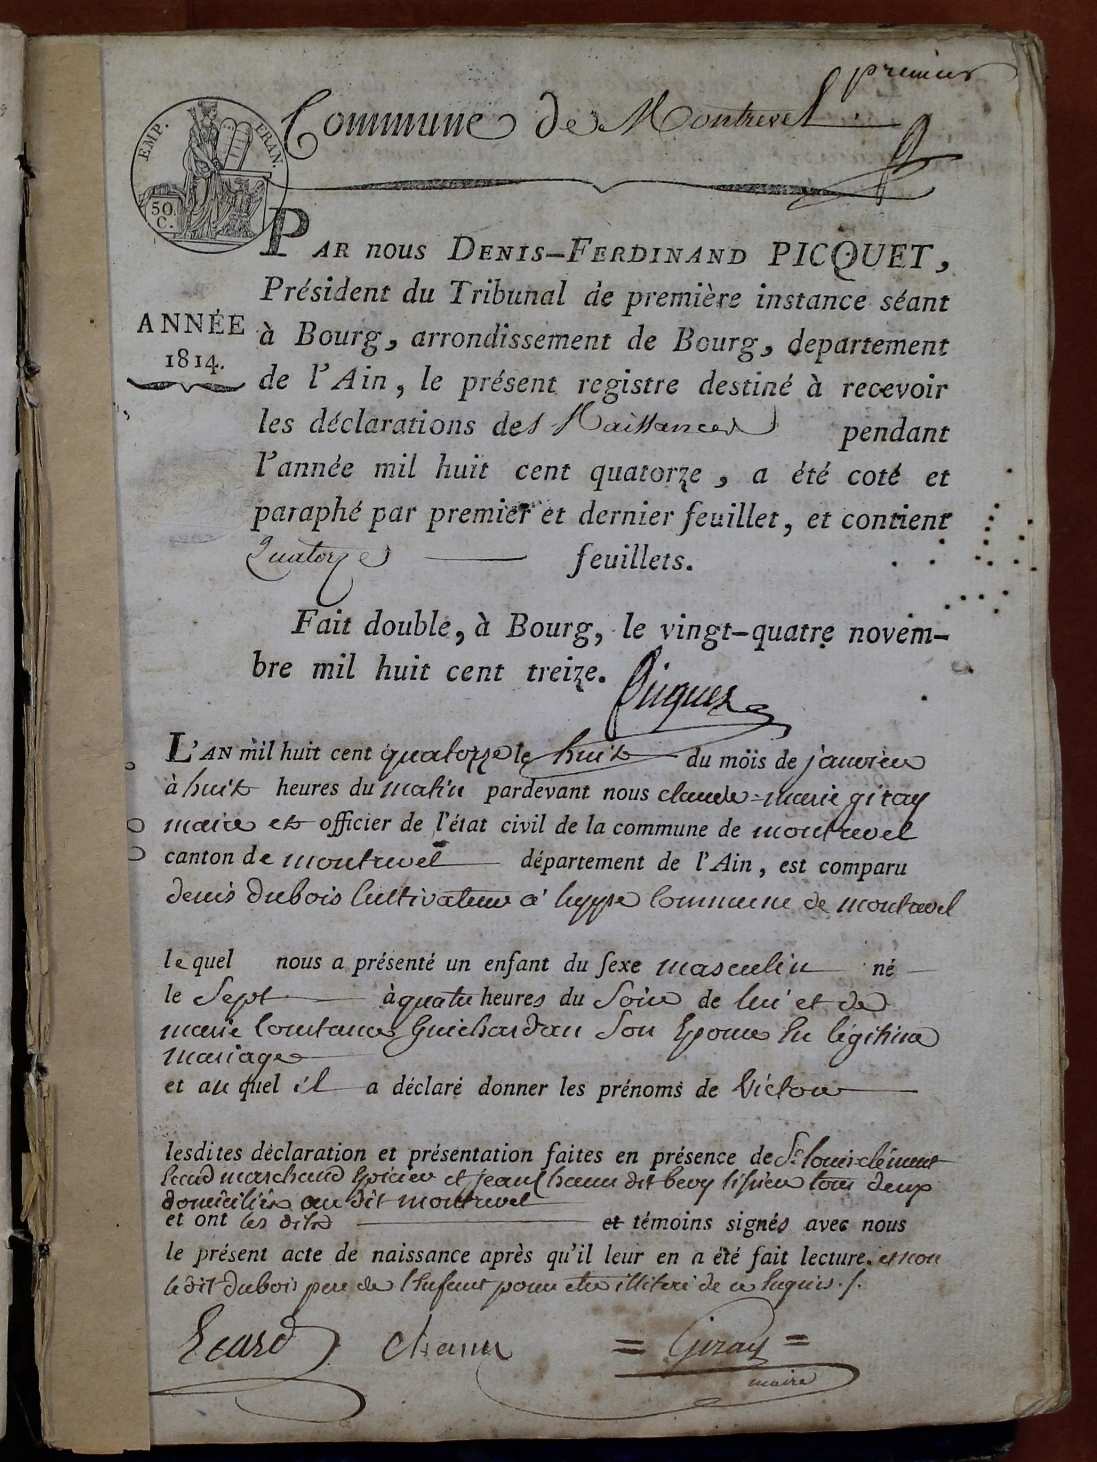 premier
Commune de Montrevel
EMP. FRAN.
50.
C.
PAR nous DENIS-FERDINAND PICQUET,
Président du Tribunal de première instance séant
ANNÉE
1814.
à Bourg, arrondissement de Bourg, departement
de l'Ain, le présent registre destiné à recevoir
les déclarations des Naissances pendant
l'année mil huit cent quatorze, a été coté et
paraphé par premier et dernier feuillet, et contient
Quatorze feuillets.
Fait double, à Bourg, le vingt-quatre novem-
bre mil huit cent treize.
Picquet
L'AN mil huit cent quatorze le huit du mois de janvier
à huit heures du matin pardevant nous claude=marie giray
maire et officier de l'état civil de la commune de montrevel
canton de montrevel département de l'Ain, est comparu
denis dubois Cultivateur à Commune de montrevel
le quel nous a présenté un enfant du sexe masculin né
le Sept à quatre heures du Soir de lui et de
marie Constance Guichardan Son Epouse En légitime
mariage
et au quel il a déclaré donner les prénoms de Victor
lesdites déclaration et présentation faites en présence de Sr. louis clément
Ecard marchand Epicier et jean Chanu dit tous deux
domiciliés au dit montrevel
et ont les dits et témoins signés avec nous
le présent acte de naissance après qu'il leur en a été fait lecture. et non
le dit dubois pere de l'Enfant pour etre illiteré de ce Enquis ./.
Ecard Chanu = Giray =
maire